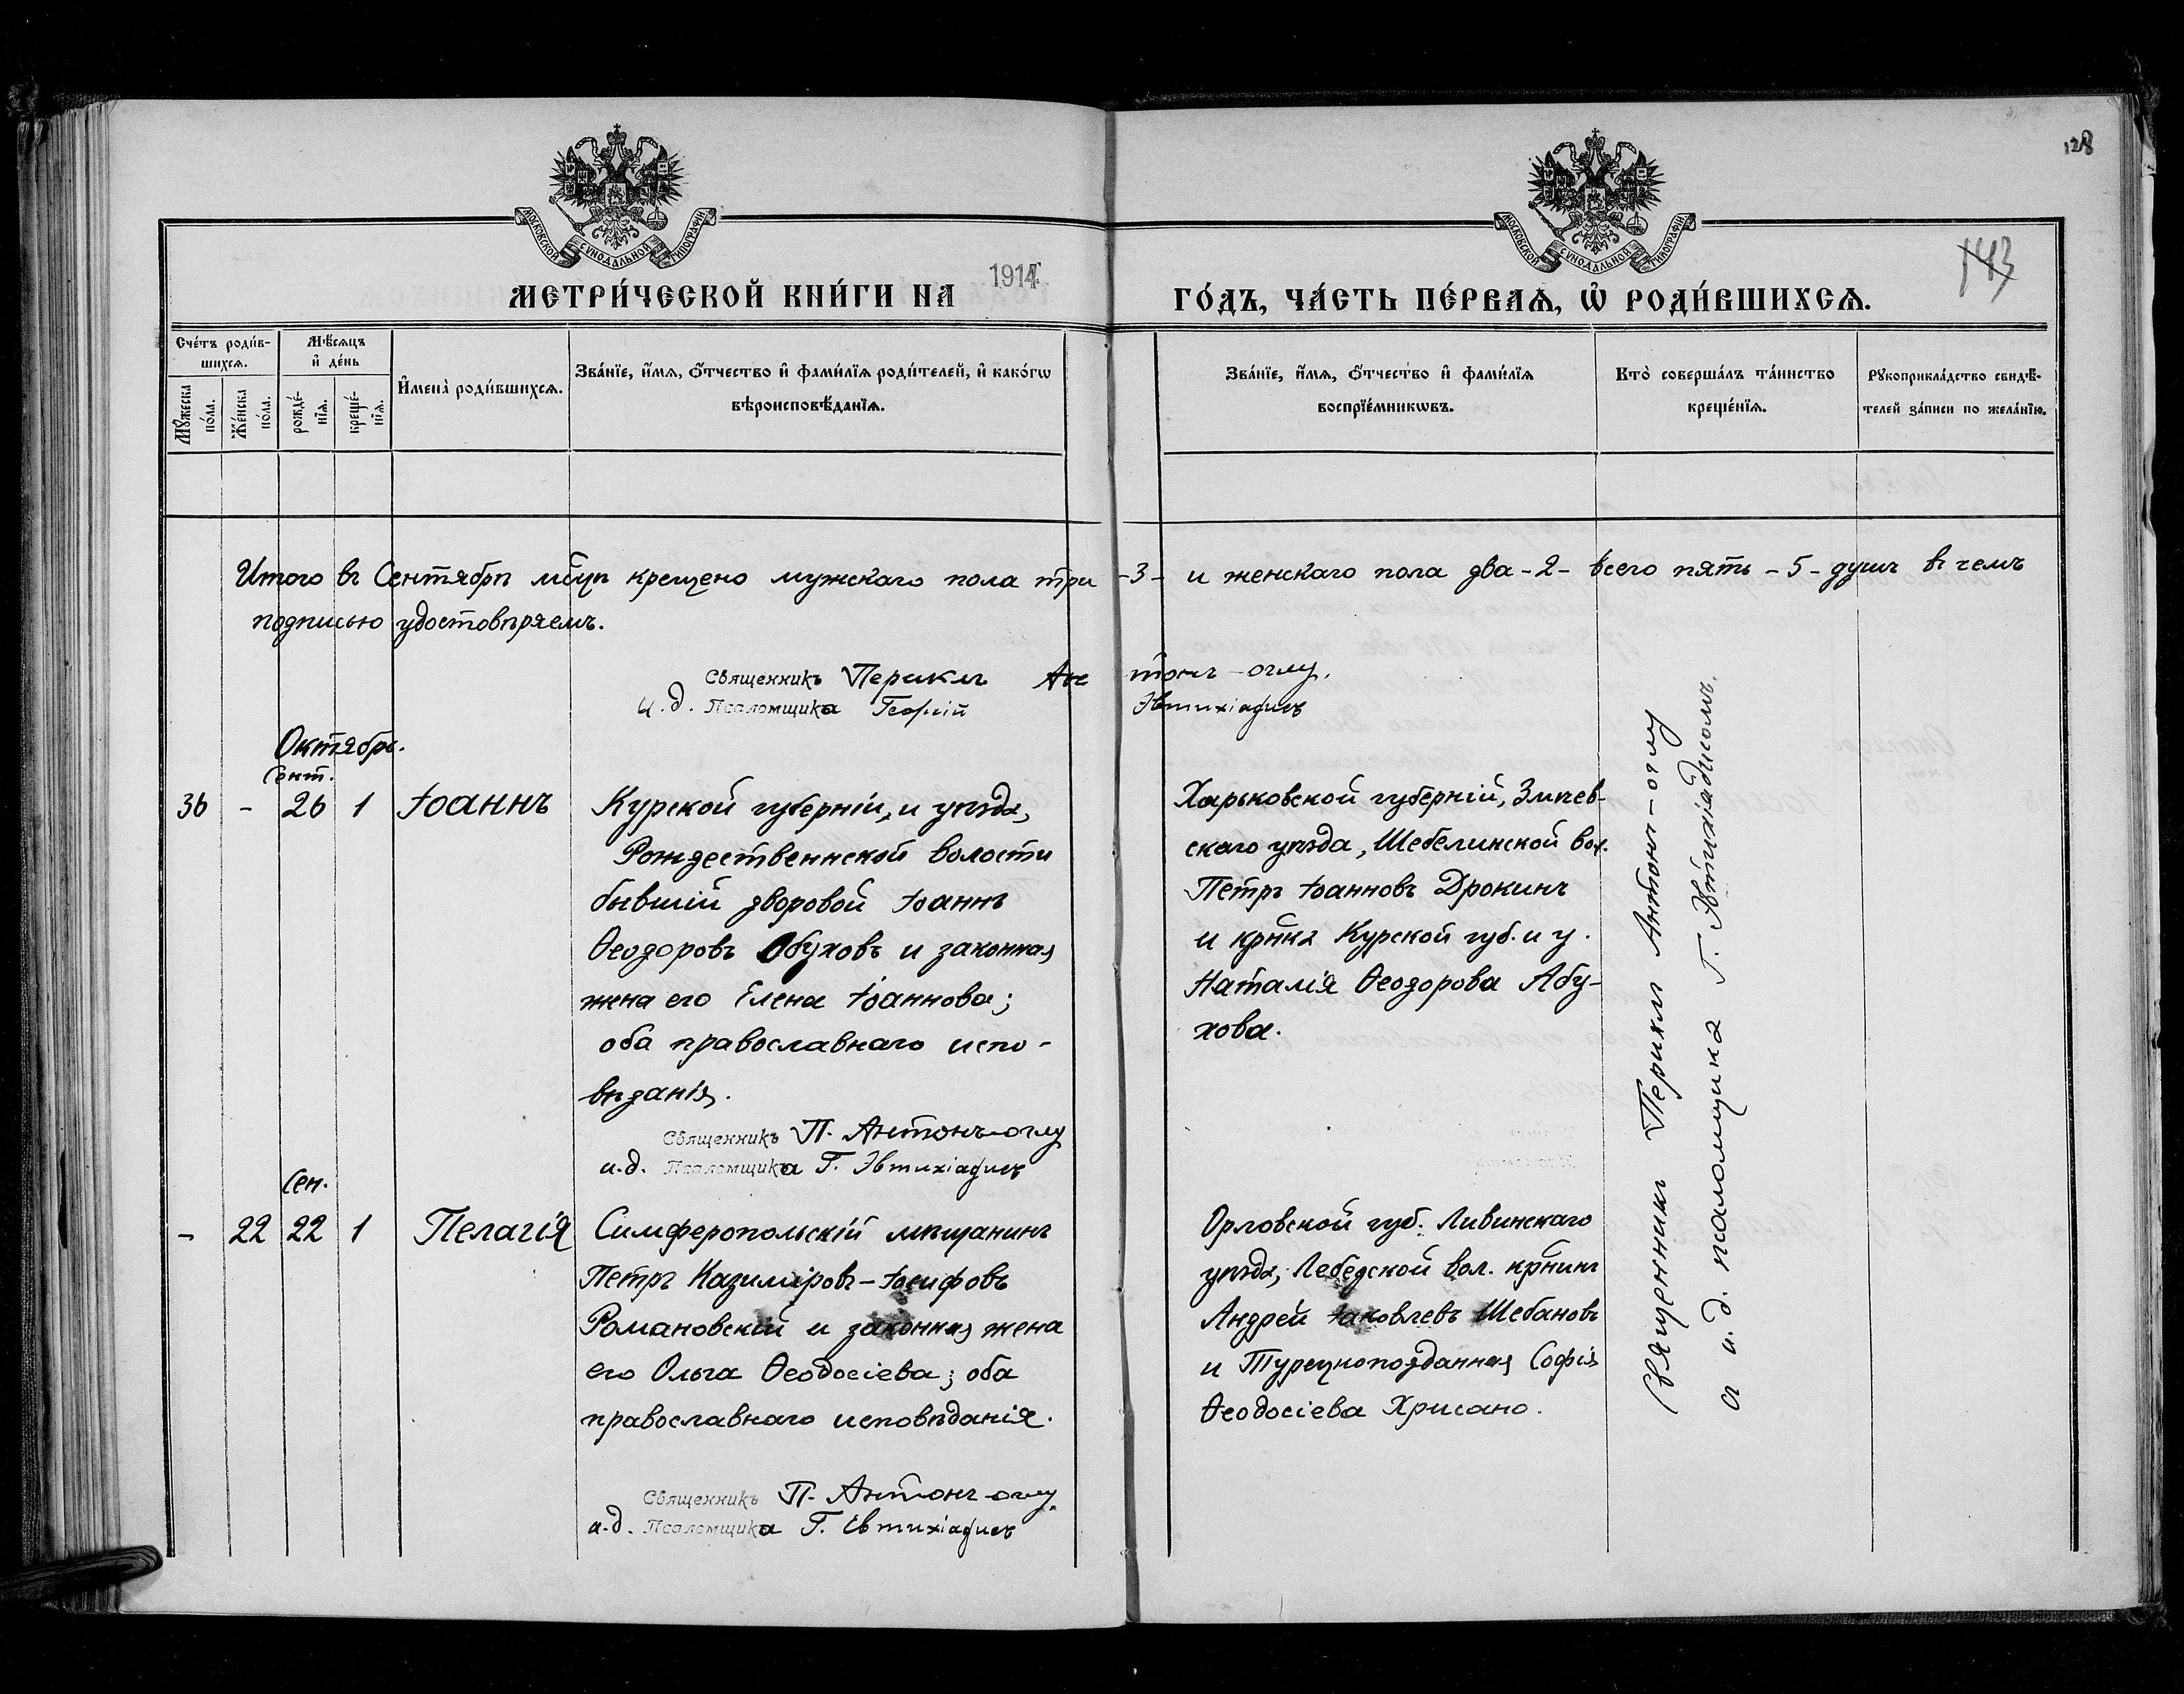 128
143
МОСКОВСКОЙ СѴНОДАЛЬНОЙ ТИПОГРАФІИ
МОСКОВСКОЙ СѴНОДАЛЬНОЙ ТИПОГРАФІИ
МЕТРИ́ЧЕСКОЙ КНИ́ГИ НА 1914 ГО́ДЪ, ЧА́СТЬ ПЕ́РВАѦ, Ѡ҆ РОДИ́ВШИХСѦ.
Сче́тъ роди́в-
шихсѧ.
Мѣ́сѧцъ
и҆ де́нь
Мꙋ́жеска
по́ла.
Же́нска
по́ла.
рожде́-
нїѧ.
креще́-
нїѧ.
И҆мена̀ роди́вшихсѧ.
Зва́нїе, и҆́мѧ, ѻ҆́тчество и҆ фами́лїѧ роди́телей, и҆ како́гѡ
вѣроисповѣ́данїѧ.
Зва́нїе, и҆́мѧ, ѻ҆́тчество и҆ фами́лїѧ
воспрїе́мникѡвъ.
Кто̀ соверша́лъ та́инство
креще́нїѧ.
Рꙋкоприкла́дство свидѣ́-
телей за́писи по жела́нїю.
Итого въ Сентябрѣ мѣсцѣ крещено мужскаго пола три -3- и женскаго пола два -2- всего пять -5- душъ въ чемъ
подписью удостовѣряемъ.
Священникъ Периклъ Антонъ-оглу.
и.д. Псаломщика Георгій Эвтихіадисъ
Октябрь.
Сент.
36 - 26 1 Іоаннъ
Курской губерніи, и уѣзда,
Рождественнской волости
бывшій дворовой Іоаннъ
Ѳеодоровъ Обуховъ и законная
жена его Елена Іоаннова;
оба православнаго испо-
вѣданія.
Священникъ П. Антонъ-оглу
и.д. Псаломщика Г. Эвтихіадисъ
Харьковской губерній, Зміев-
скаго уѣзда, Шебелинской вол.
Петръ Іоанновъ Дрокинъ
и крѣнка Курской губ. и у.
Наталія Ѳеодорова Абу-
хова.
Священникъ Периклъ Антонъ-оглу
съ и.д. псаломщика Г. Эвтихіадисомъ.
Сен.
- 22 22 1 Пелагія
Симферопольскій мѣщанинъ
Петръ Казиміровъ-Іосифовъ
Романовскій и законная жена
его Ольга Ѳеодосіева; оба
православнаго исповѣданія.
Священникъ П. Антонъ-оглу.
и.д. Псаломщика Г. Евтихіадисъ
Орловской губ. Ливинскаго
уѣзда, Лебедской вол. крѣнинъ
Андрей Іаковлевъ Шебановъ
и Турецкоподданная Софія
Ѳеодосіева Хрисано.